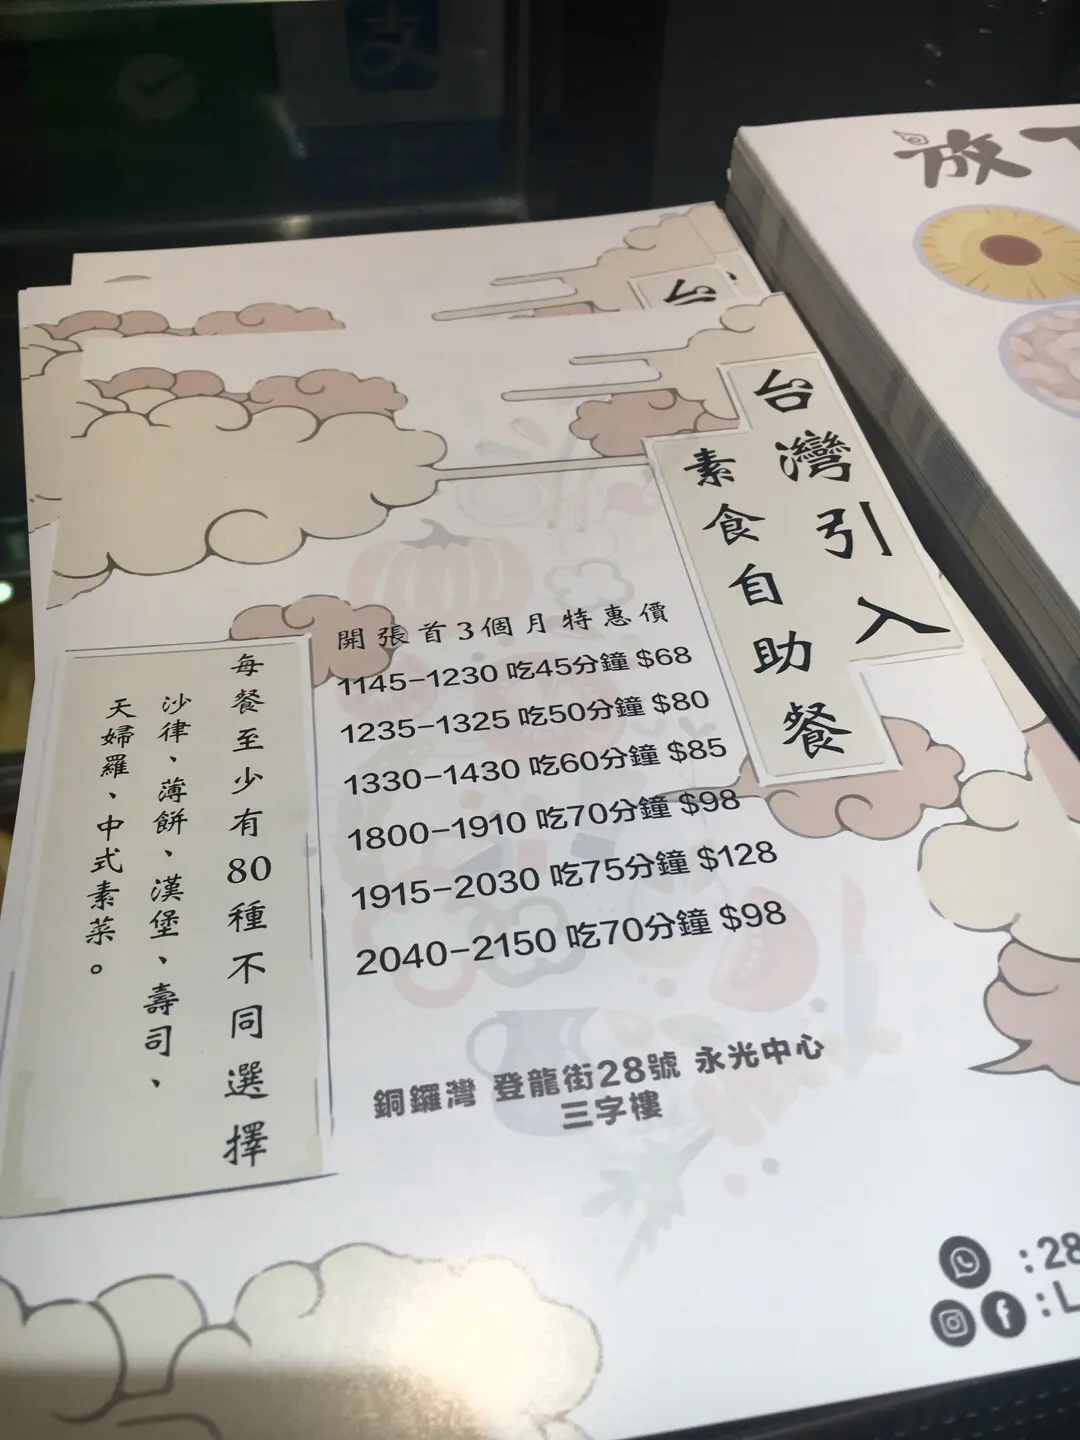 放下
台灣引入
素食自助餐
開張首3個月特惠價
1145-1230 吃45分鐘 $68
1235-1325 吃50分鐘 $80
1330-1430 吃60分鐘 $85
1800-1910 吃70分鐘 $98
1915-2030 吃75分鐘 $128
2040-2150 吃70分鐘 $98
每餐至少有80種不同選擇
沙律、薄餅、漢堡、壽司、
天婦羅、中式素菜。
銅鑼灣 登龍街28號 永光中心
三字樓
:28
:L
台
支